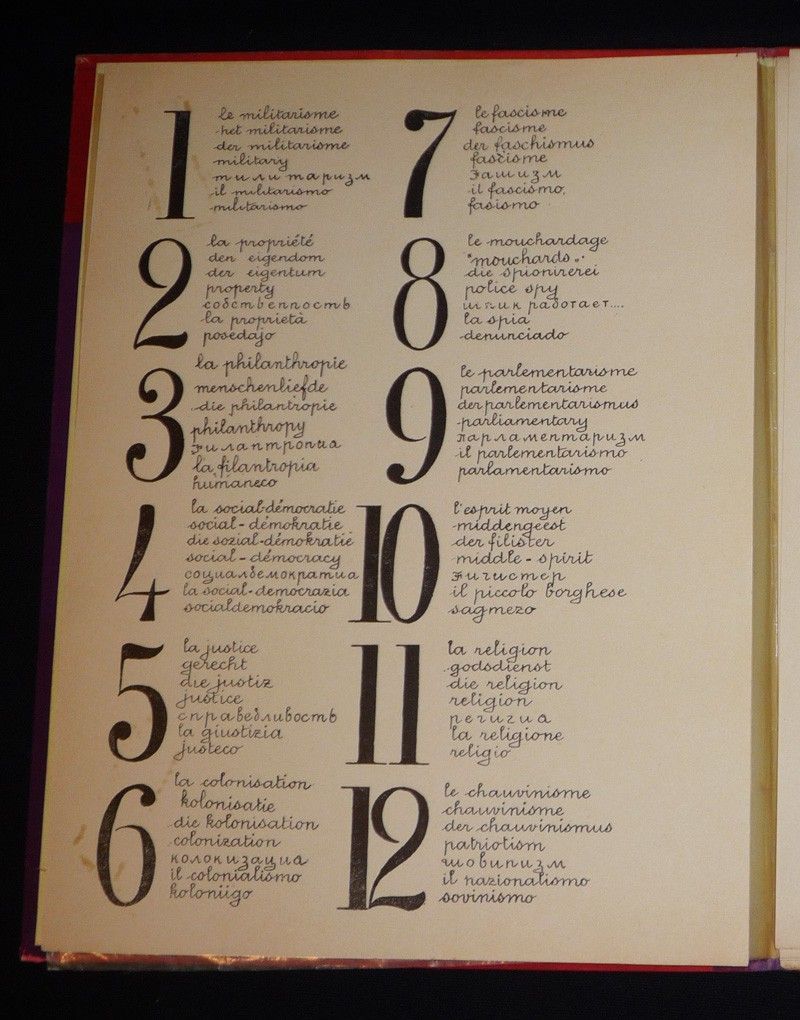 1
le militarisme
het militarisme
der militarisme
military
милитаризм
il militarismo
militarismo
2
la propriété
den eigendom
der eigentum
property
собственность
la proprietà
posedajo
3
la philanthropie
menschenliefde
die philantropie
philanthropy
филантропиа
la filantropia
humaneco
4
la social-démocratie
social-démokratie
die sozial-démokratie
social-démocracy
социалдемократиа
la social-democrazia
socialdemokracio
5
la justice
gerecht
die justiz
justice
справедливость
la giustizia
justeco
6
la colonisation
kolonisatie
die kolonisation
colonization
колокизациа
il colonialismo
koloniigo
7
le fascisme
fascisme
der faschismus
fascisme
Фашизм
il fascismo,
fasismo
8
le mouchardage
"mouchards."
die spionirerei
police spy
шпик работает....
la spia
denunciado
9
le parlementarisme
parlementarisme
der parlementarismus
parliamentary
парламентаризм
il parlementarismo
parlamentarismo
10
l'esprit moyen
middengeest
der filister
middle-spirit
il piccolo borghese
sagmezo
11
la religion
godsdienst
die religion
religion
регигиа
la religione
religio
12
le chauvinisme
chauvinisme
der chauvinismus
patriotism
шовинизм
il nazionalismo
sovinismo